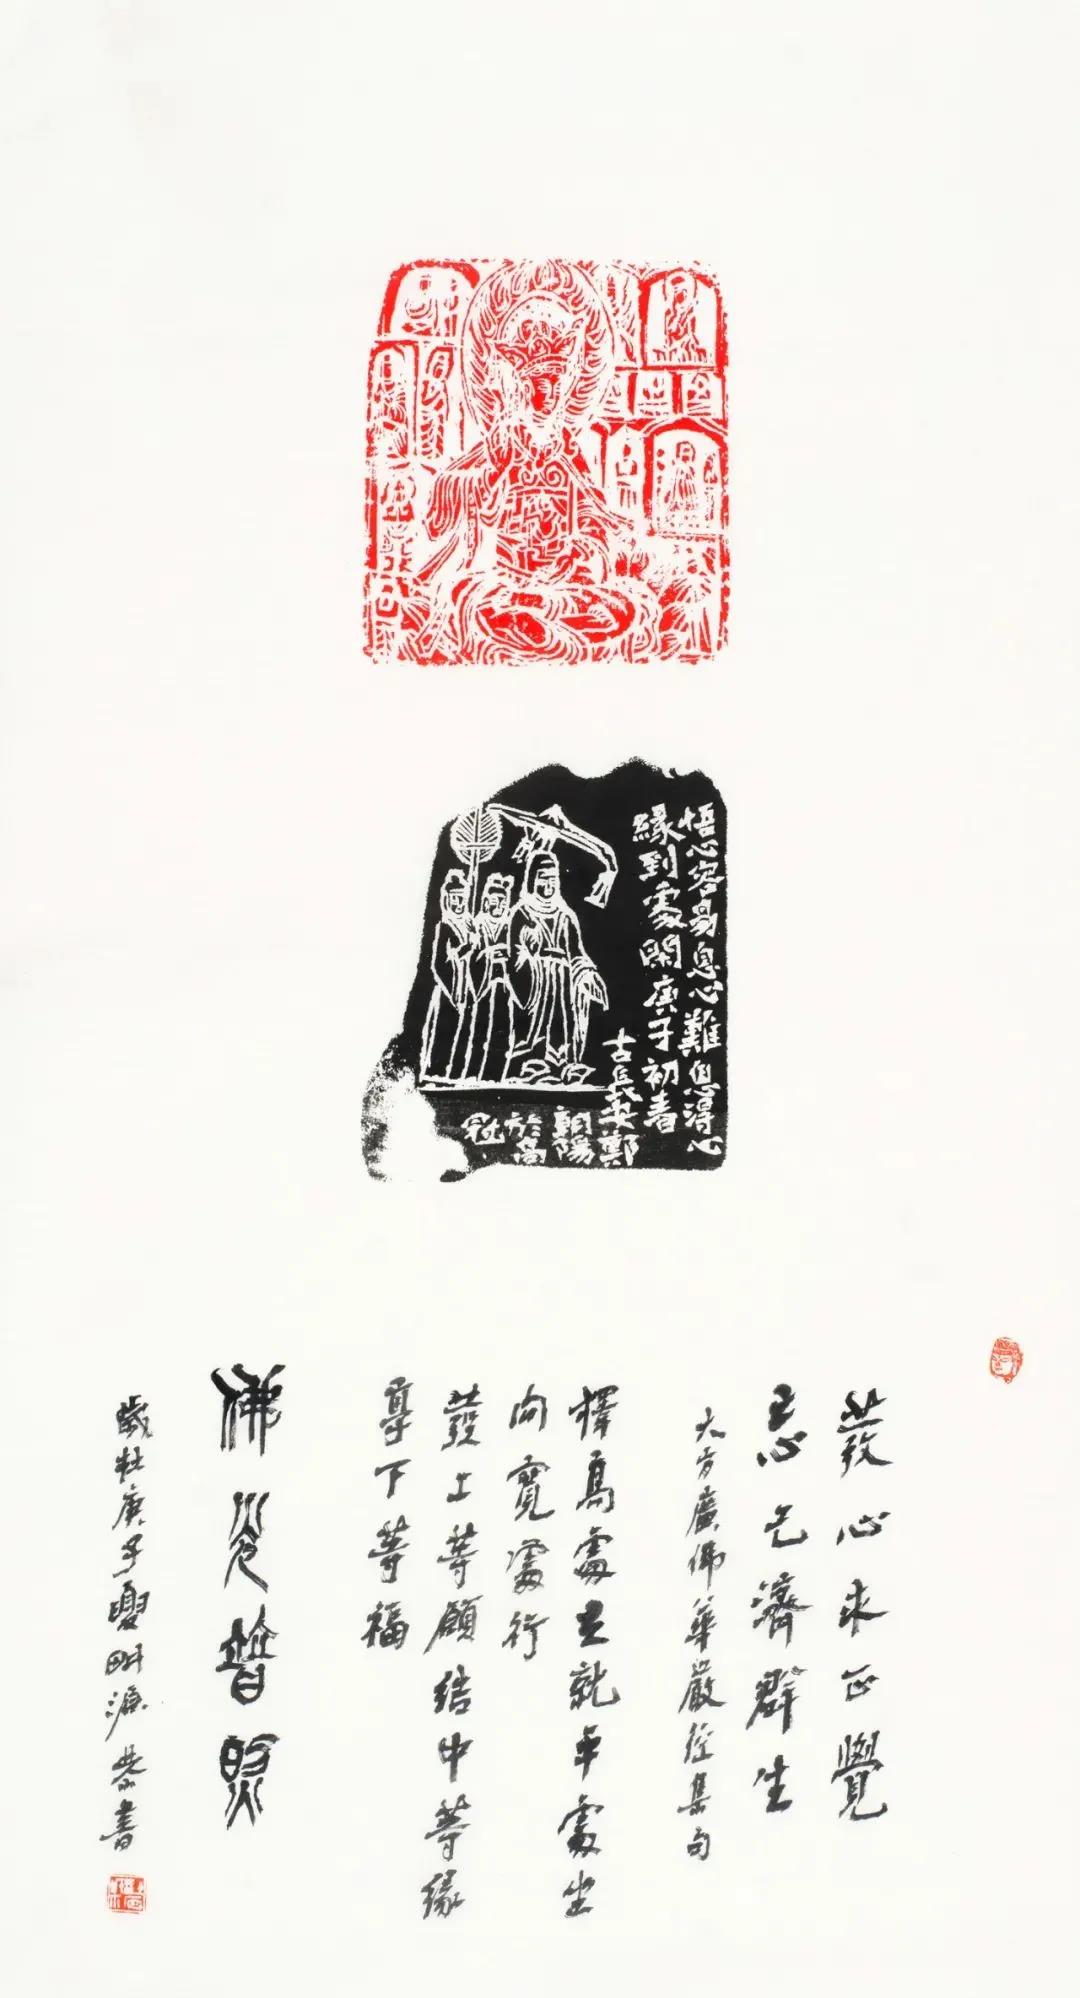 悟心容易息心難息得心
緣到處閑庚子初春
古長安鄭
朝陽
於高
冠
發心求正覺
忘己濟群生
大方廣佛華嚴經集句
擇高處立就平處坐
向寬處行
發上等願結中等緣
享下等福
佛光普照
歲在庚子夏畊源恭書